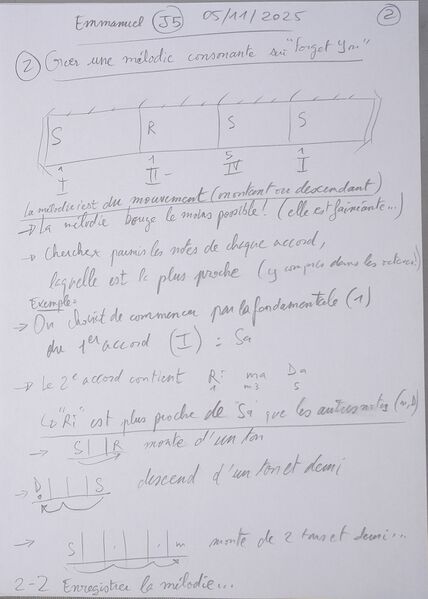 Emmanuel J5 05/11/2025 2
2 Créer une mélodie consonante sur "Forget You"
S R S S
1 1 5 1
I II- IV I
La mélodie est du mouvement (montant ou descendant)
→ La mélodie bouge le moins possible! (elle est fainéante...)
→ Chercher parmi les notes de chaque accord,
laquelle est la plus proche (y compris dans les octaves)
Exemple:
→ On choisit de commencer par la fondamentale (1)
du 1er accord (I) = Sa
→ Le 2e accord contient Ri ma Da
1 m3 5
↳ "Ri" est plus proche de "Sa" que les autres notes (m, D)
→ S R monte d'un ton
→ D S descend d'un ton et demi
→ S m monte de 2 tons et demi...
2-2 Enregistrer la mélodie...